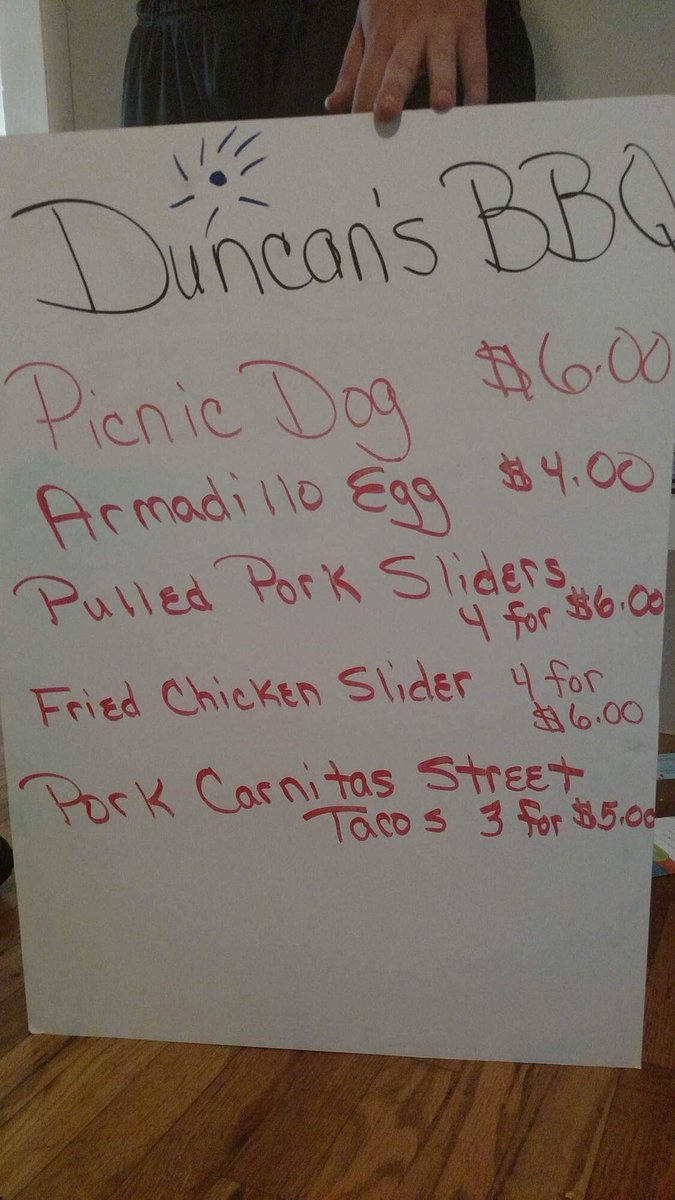 Duncan's BBQ
Picnic Dog $6.00
Armadillo Egg $4.00
Pulled Pork Sliders
4 for $6.00
Fried Chicken Slider 4 for
$6.00
Pork Carnitas Street
Tacos 3 for $5.00